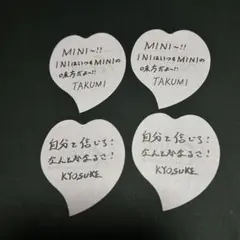 MINI〜!!
INIはいつもMINIの
味方だよ〜!!
TAKUMI
MINI〜!!
INIはいつもMINIの
味方だよ〜!!
TAKUMI
自分を信じろ!
なんとかなるさ!
KYOSUKE
自分を信じろ!
なんとかなるさ!
KYOSUKE